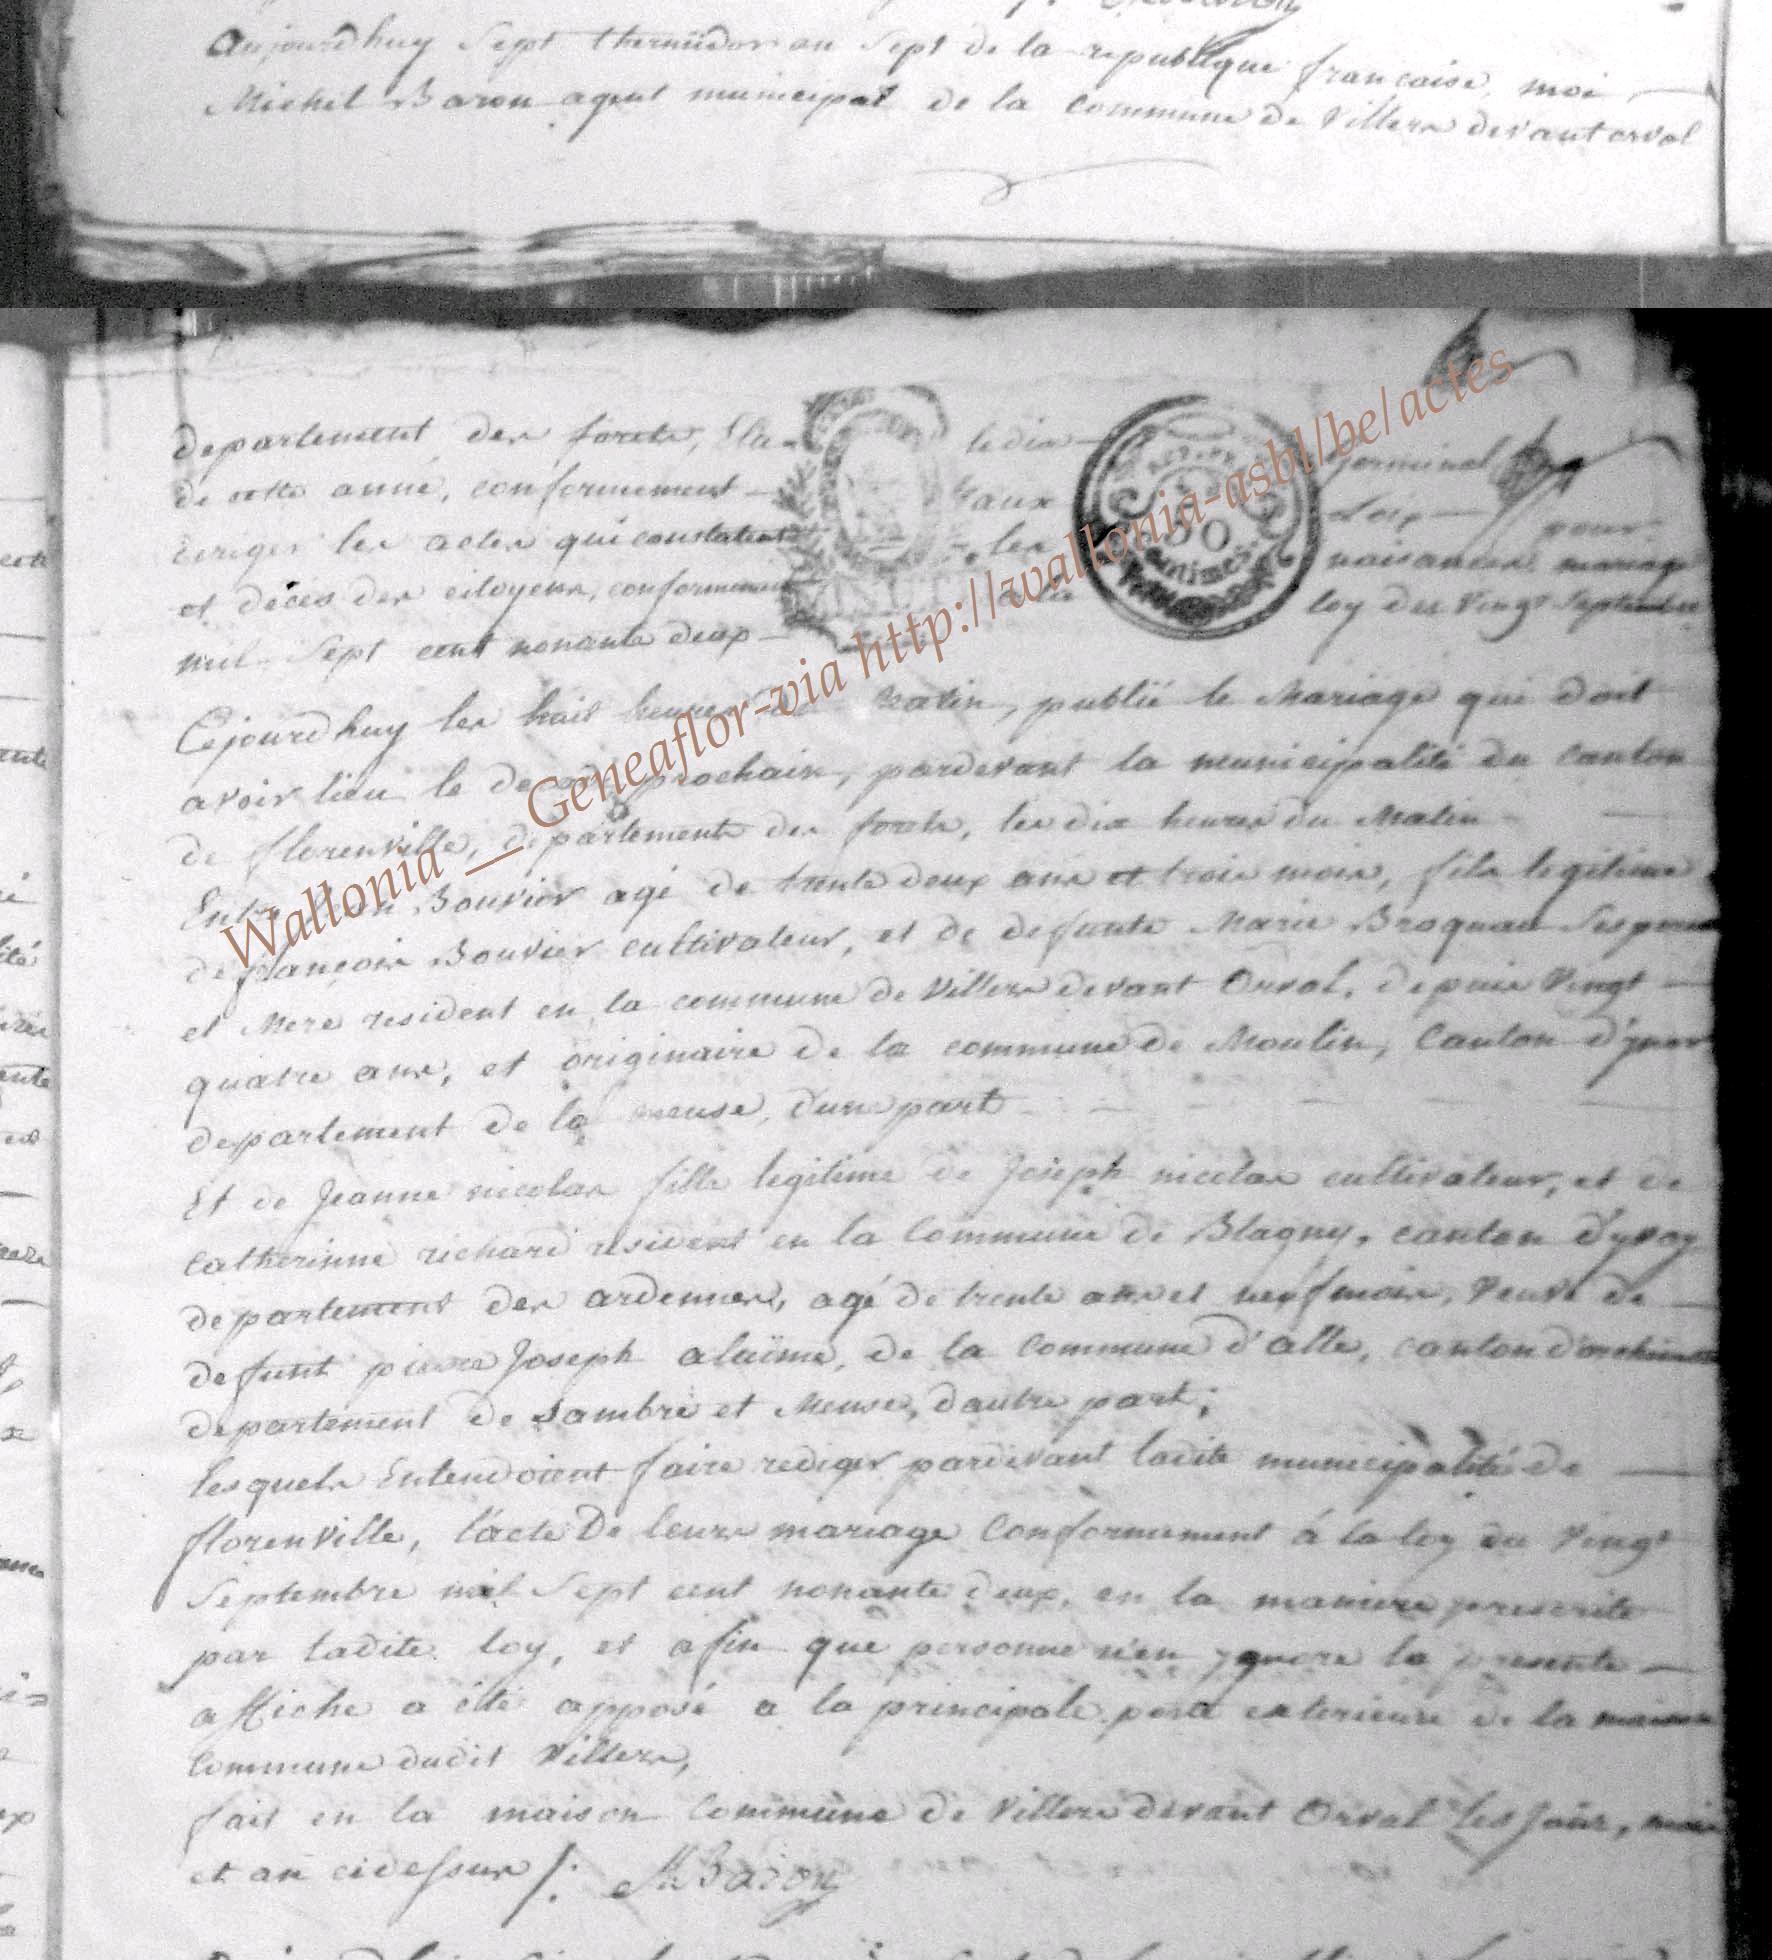 Aujourdhuy Sept thermidor an Sept de la republique francaise, moi
Michel Baron agent municipal de la Commune de Villers devant orval
departement des forets, le dix germinal
de cette anné, conformement aux Loix pour
les actes qui constatent les naisances mariage
et décés des citoyens, conformement a la loy du Vingt Septembre
mil Sept cent nonante deux
Cejourdhuy les huit heures du Matin, publié le Mariage qui doit
avoir lieu le prochain, pardevant la municipalité du Canton
de florenville, departement des forets, les dix heures du Matin
Entre Bouvier agé de trente deux ans et trois mois, fils legitime
de françois Bouvier cultivateur, et de defunte Marie Broquau Ses pere
et Mere resident en la commune de Villers devant Orval, depuis Vingt
quatre ans, et originaire de la commune de Moulin, Canton
departement de la meuse, d'une part
Et de Jeanne nicolas fille legitime de Joseph nicolas cultivateur, et de
Catherinne richard resident en la Commune de Blagny, canton d'yvoy
departement des ardennes, agé de trente ans et neuf mois, Veuve de
defunt pierre Joseph alaime, de la Commune d'alle, canton
departement de Sambre et Meuse, d'autre part;
lesquels Entendoient faire rediger pardevant ladite municipalité de
florenville, l'acte De leurs mariage Conformement á la loy du Vingt
Septembre mil Sept cent nonante deux, en la maniere prescrite
par ladite loy, et afin que personne n'en ygnore la presente
affiche a été apposé a la principale porte exterieure de la maison
Commune dudit Villers,
fait en la maison Commune de Villers devant Orval Les Jour, mois
et an cidessus /. M Baron
50
Centimes
Wallonia __ Geneaflor-via http://wallonia-asbl/be/actes